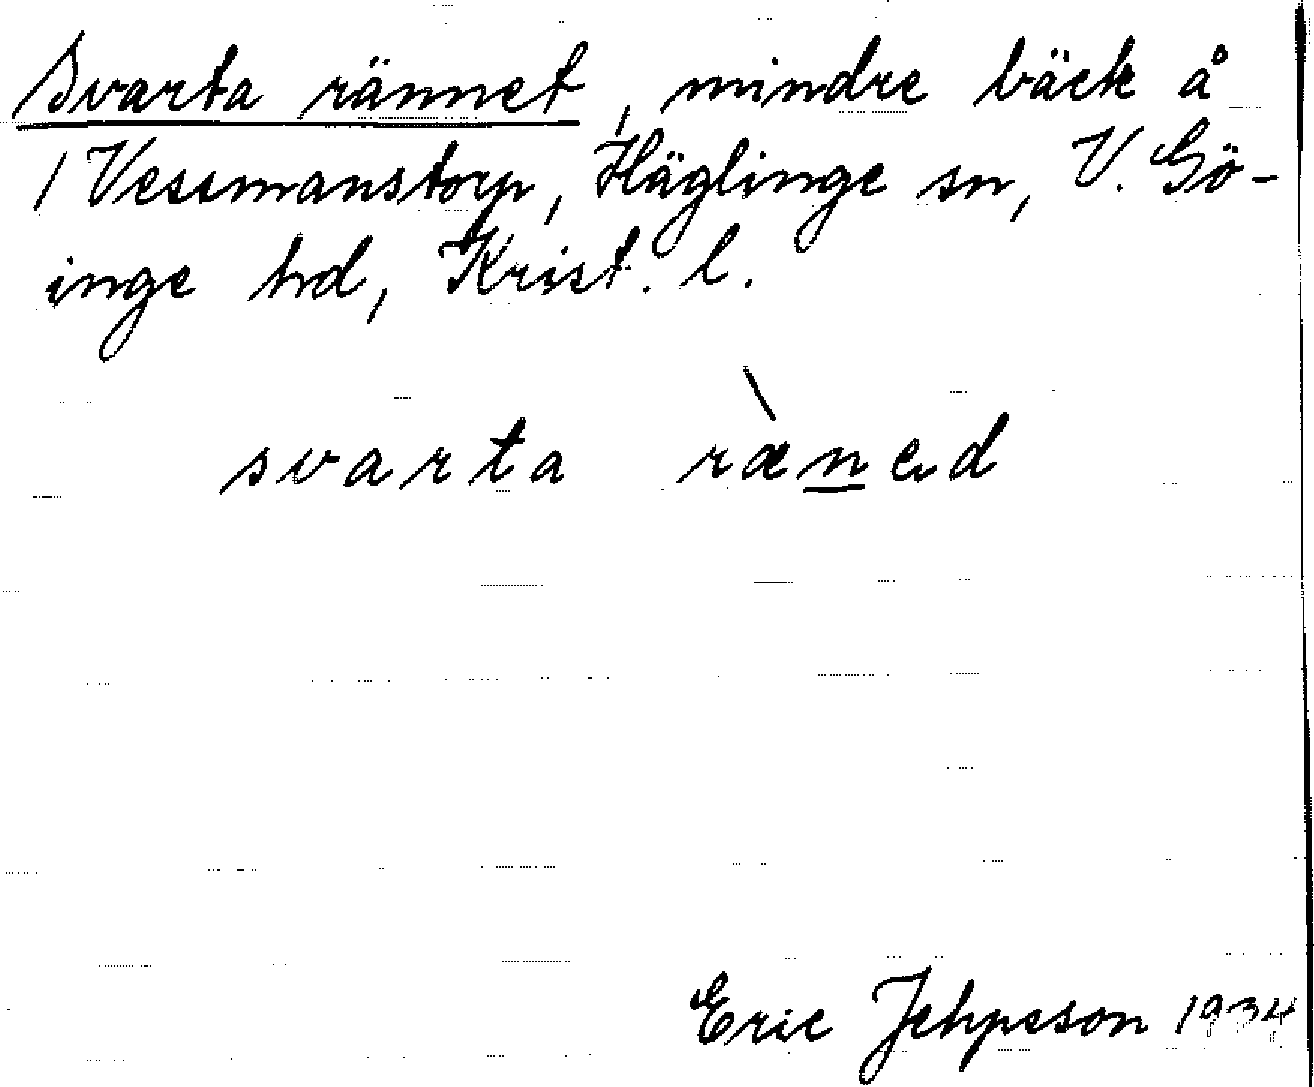 Svarta rännet, mindre bäck å
1 Vessmanstorp, Häglinge sn, V. Gö-
inge hd, Krist. l.
svarta ræ̀n̲ed
Eric Jehpeson 1934